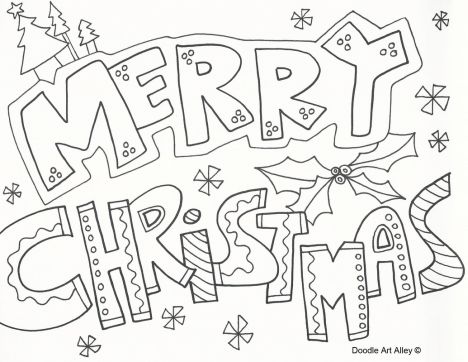 MERRY
CHRiSTMAS
Doodle Art Alley ©